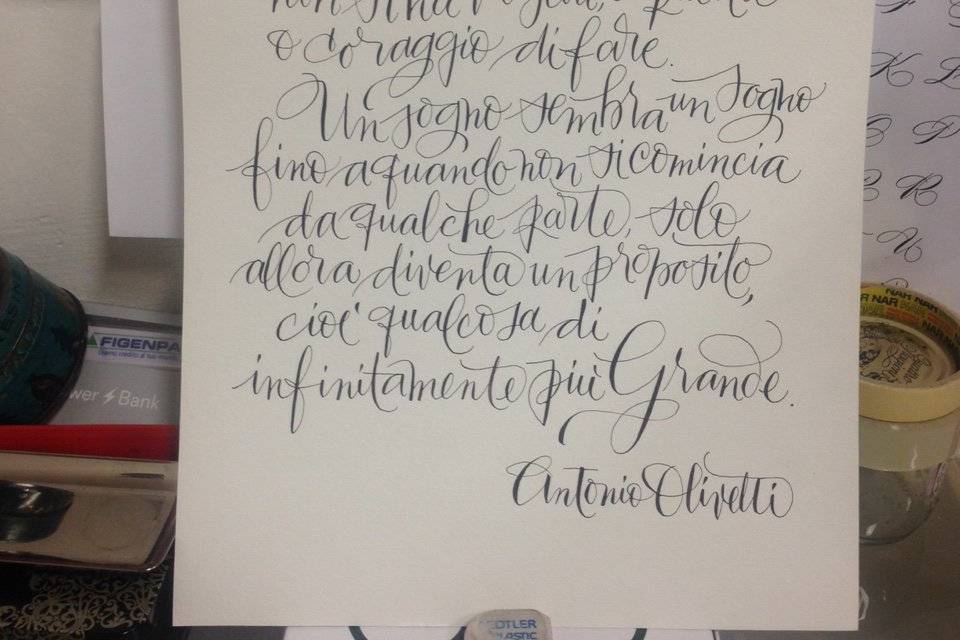 o coraggio di fare.
Un sogno sembra un sogno
fino a quando non si comincia
da qualche parte, solo
allora diventa un proposito,
cioè qualcosa di
infinitamente più Grande.
Antonio Olivetti
FIGENPA
wer Bank
NAR NAR
K L
P
R
U